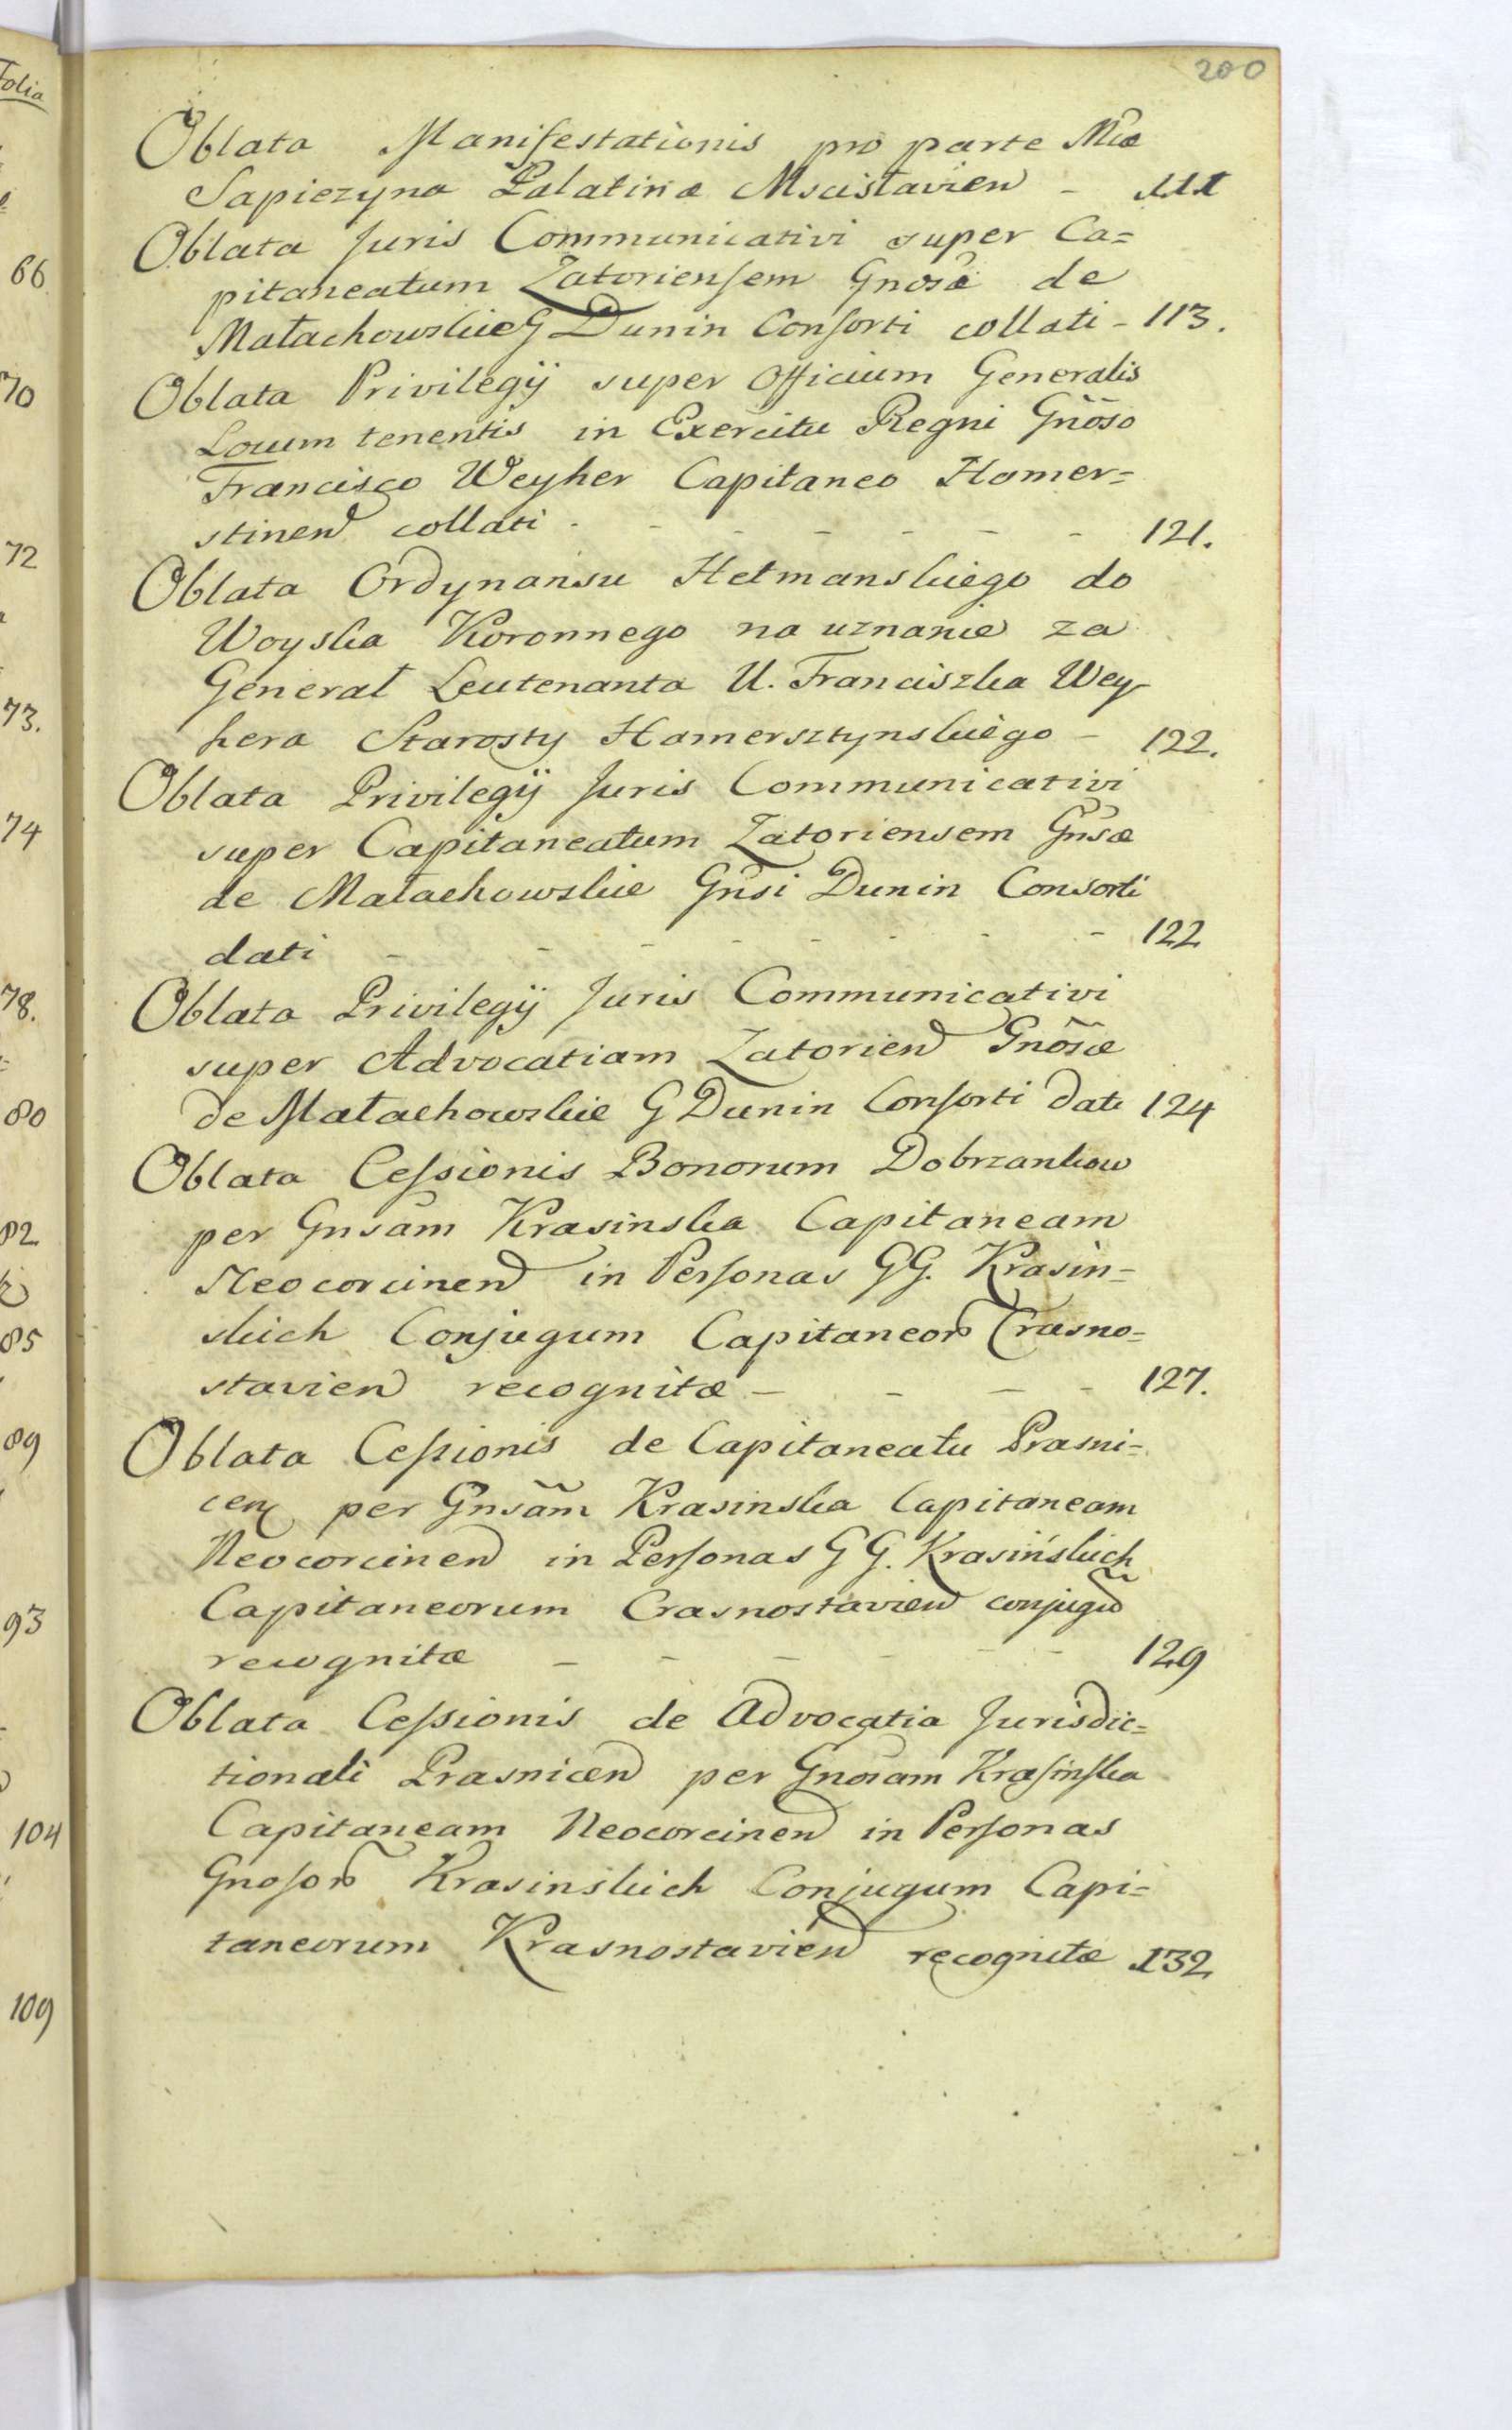 Folia
200
Oblata Manifestationis pro parte Mcæ
Sapiezyna Palatinæ Mscisłavien - 111
Oblata Juris Communicativi super Ca=
pitaneatum Zatoriensem Gnosæ de
Małachowskie G Dunin Consorti collati - 113.
Oblata Privilegÿ super Officium Generalis
Locum tenentis in Exercitu Regni Gnõso
Francisco Weyher Capitaneo Hamer=
stinen collati - - - - - - 121.
Oblata Ordynansu Hetmanskiego do
Woyska Koronnego na uznanie za
Generał Leutenanta U. Franciszka Wey-
hera Starosty Hamersztynskiego - 122.
Oblata Privilegÿ Juris Communicativi
super Capitaneatum Zatoriensem Gnsæ
de Małachowskie Gnsi Dunin Consorti
dati - - - - - - - 122
Oblata Privilegÿ Juris Communicativi
super Advocatiam Zatorien Gnõsæ
de Małachowskie G Dunin Consorti dati 124
Oblata Cessionis Bonorum Dobrzankow
per Gnsam Krasinska Capitaneam
Neocorcinen in Personas GG. Krasin=
skich Conjugum Capitaneor Crasno=
stavien recognitæ - - - - 127.
Oblata Cessionis de Capitaneatu Prasni=
cen per Gnsãm Krasinska Capitaneam
Neocorcinen in Personas GG. Krasińskich
Capitaneorum Crasnostavien conjugũ
recognitæ - - - - - - 129
Oblata Cessionis de Advocatia Jurisdic=
tionali Prasnicen per Gnosam Krasinska
Capitaneam Neocorcinen in Personas
Gnosor Krasinskich Conjugum Capi=
taneorum Krasnostavien recognitæ 132
66
70
72
73.
74
78.
80
82
85
89
93
104
109